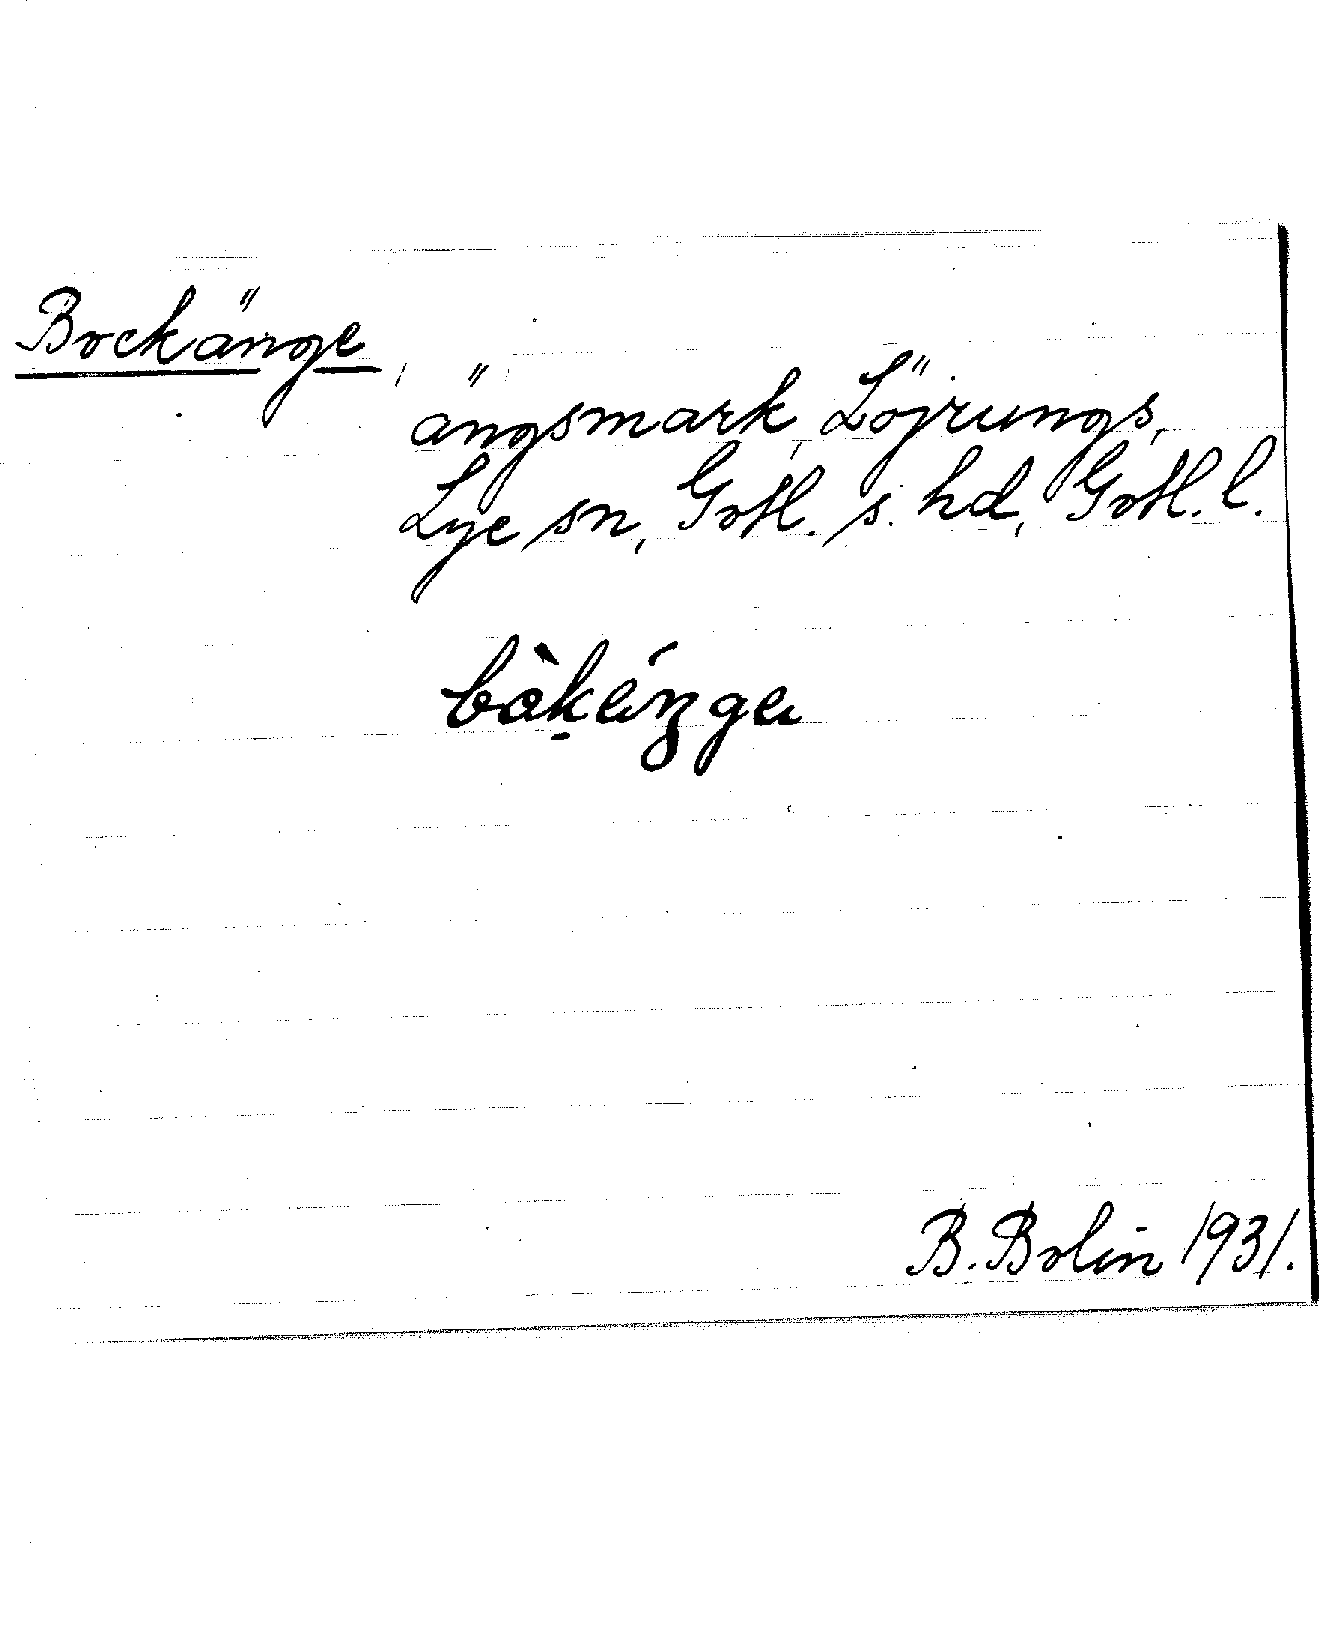 Bockänge,
ängsmark, Löjrungs,
Lye sn, Gotl. s. hd, Gotl. l.
bòkéŋgɛ
B. Bolin 1931.